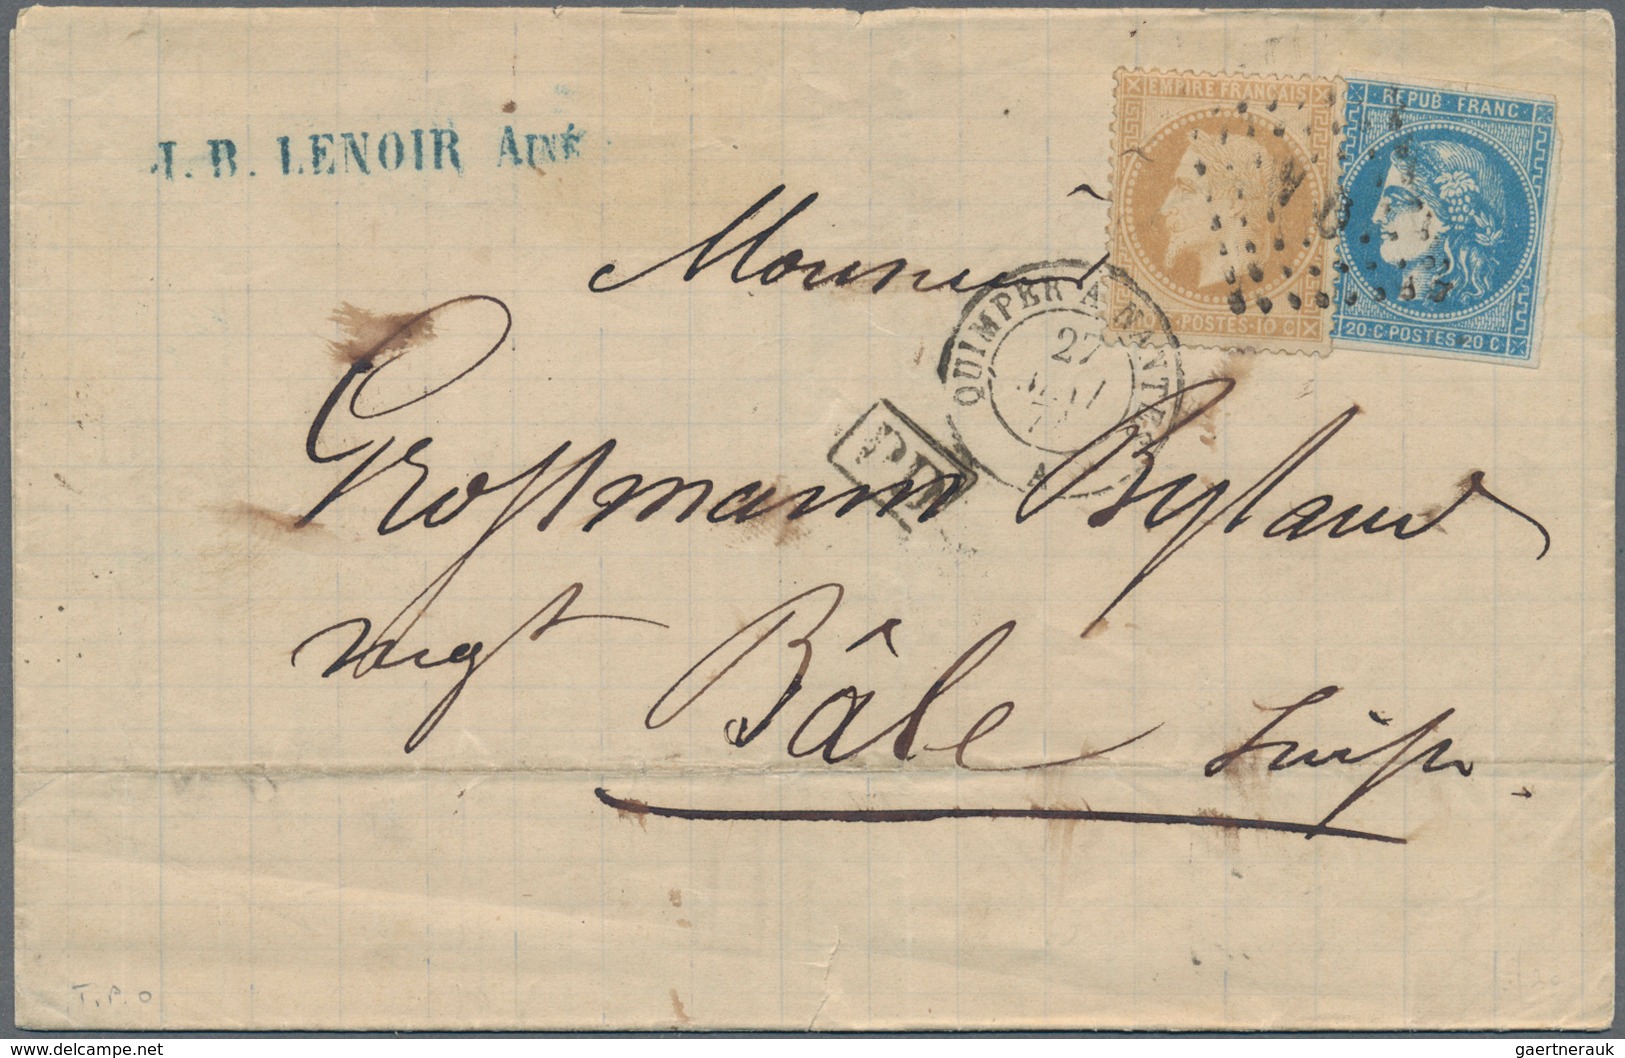 J. B. LENOIR AINÉ
EMPIRE FRANÇAIS
10 C · POSTES · 10 C
REPUB · FRANC
20 · C · POSTES 20 C
QUIMPER A NANTES
27
71
PD
Monsieur
Grossmann
Bâle Suisse
T.P.O
© www.delcampe.net
gaertnerauk